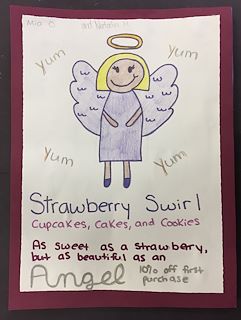 Mia O. and Natalia M.
Yum Yum
Yum Yum
Strawberry Swirl
Cupcakes, Cakes, and Cookies
As sweet as a strawberry,
but as beautiful as an
Angel 10% off first
purchase